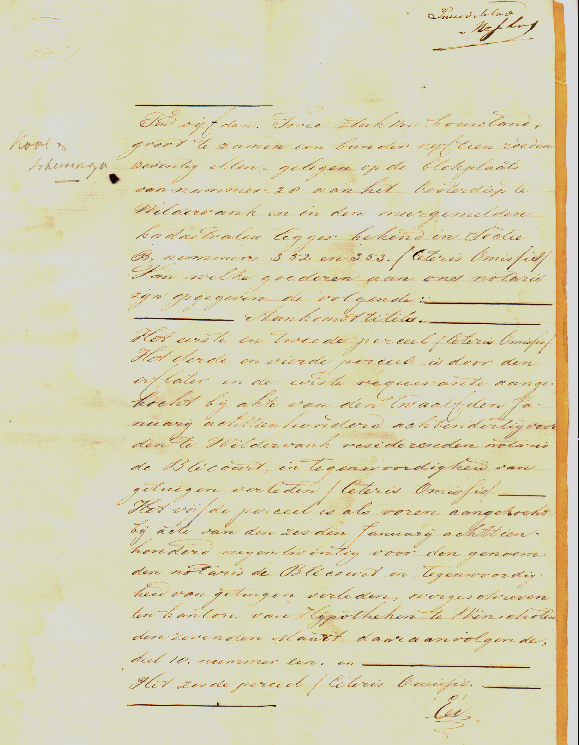 Tweede blad
Kool &
Scheuninga
Ten vijfden. Twee stukken bouwland,
groot te zamen een bunder vijftien roeden
zeventig ellen, gelegen op de blokplaats
van nummer 20 aan het Oosterdiep te
Wildervank en in den meergemelden
kadastralen legger bekend in Sectie
B. nummers 352 en 353. / Ceteris Omissis /
Van welke goederen aan ons notaris
zijn opgegeven de volgende:
Aankomsttitels.
Het eerste en tweede perceel / Ceteris Omissis /
Het derde en vierde perceel is door den
erflater en de eerste requirante aange-
kocht bij akte van den twaalfden Ja-
nuarij achttienhonderd achtendertig voor
den te Wildervank resideerenden notaris
de Blécourt, in tegenwoordigheid van
getuigen verleden / Ceteris Omissis /.
Het vijfde perceel is als voren aangekocht
bij acte van den zesden Januarij achttien-
honderd negentwintig voor den genoem-
den notaris de Blécourt in tegenwoordig-
heid van getuigen verleden, overgeschreven
ten kantore van Hypotheken te Winschoten
den zevenden Maart daaraanvolgende,
deel 10. nummer ten. en
Het zesde perceel / Ceteris Omissis /.